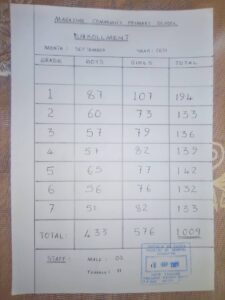 COMMUNITY PRIMARY SCHOOL
ENROLLMENT
MONTH: SEPTEMBER YEAR:
GRADE BOYS GIRLS TOTAL
1 87 107 194
2 60 73 133
3 57 79 136
4 57 82 139
5 65 77 142
6 56 76 132
7 51 82 133
TOTAL: 433 576 1009
STAFF: MALE: 02
FEMALE: 11